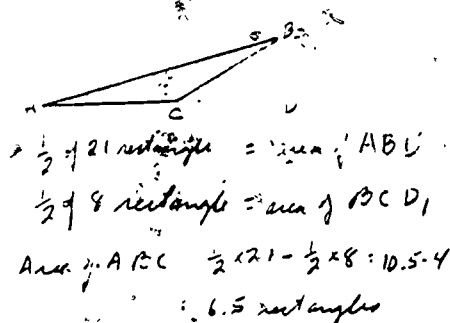 B
A
C
1/2 of 21 rectangle = area of ABD
1/2 of 8 rectangle = area of BCD,
Area of ABC 1/2 × 21 - 1/2 × 8 : 10.5-4
: 6.5 rectangles